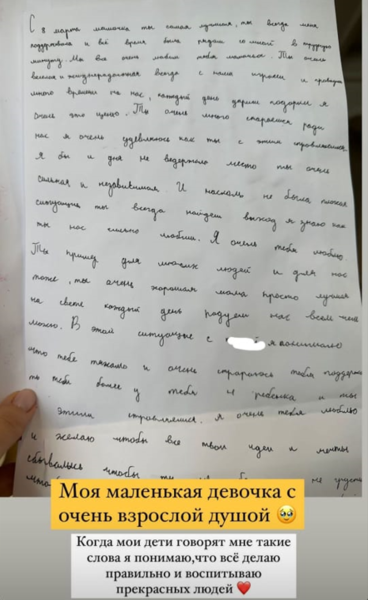 С 8 марта мамочка ты самая лучшая, ты всегда меня
поддерживала и всё время была рядом со мной в трудную
минуту. Мы все очень любим тебя мамочка. Ты очень
весёлая и всегда с нами играешь и
много времени на нас, каждый день даришь подарки я
очень это ценю. Ты очень много стараешся ради
нас я очень удевляюсь как ты с этим справляешся
Я бы и дня не выдержала место ты очень
сильная и независимая И насколь не была плохая
ситуация ты всегда найдёш выход я знаю как
ты нас сильно любиш. Я очень тебя люблю
Ты пример для многих людей и для нас
тоже, ты очень хорошая мама просто лучшая
на свете каждый день радуеш нас всем чем
можно. В этой ситуацые с я
что тебе тяжело и очень стараюсь тебя поддержа
ть тем более у тебя 4 ребёнка и ты
этим справляешся. Я очень тебя люблю
и желаю чтобы все твои идеи и мечты
сбывались чтобы ты не грусти
Моя маленькая девочка с
очень взрослой душой 🥹
Когда мои дети говорят мне такие
слова я понимаю,что всё делаю
правильно и воспитываю
прекрасных людей ❤️